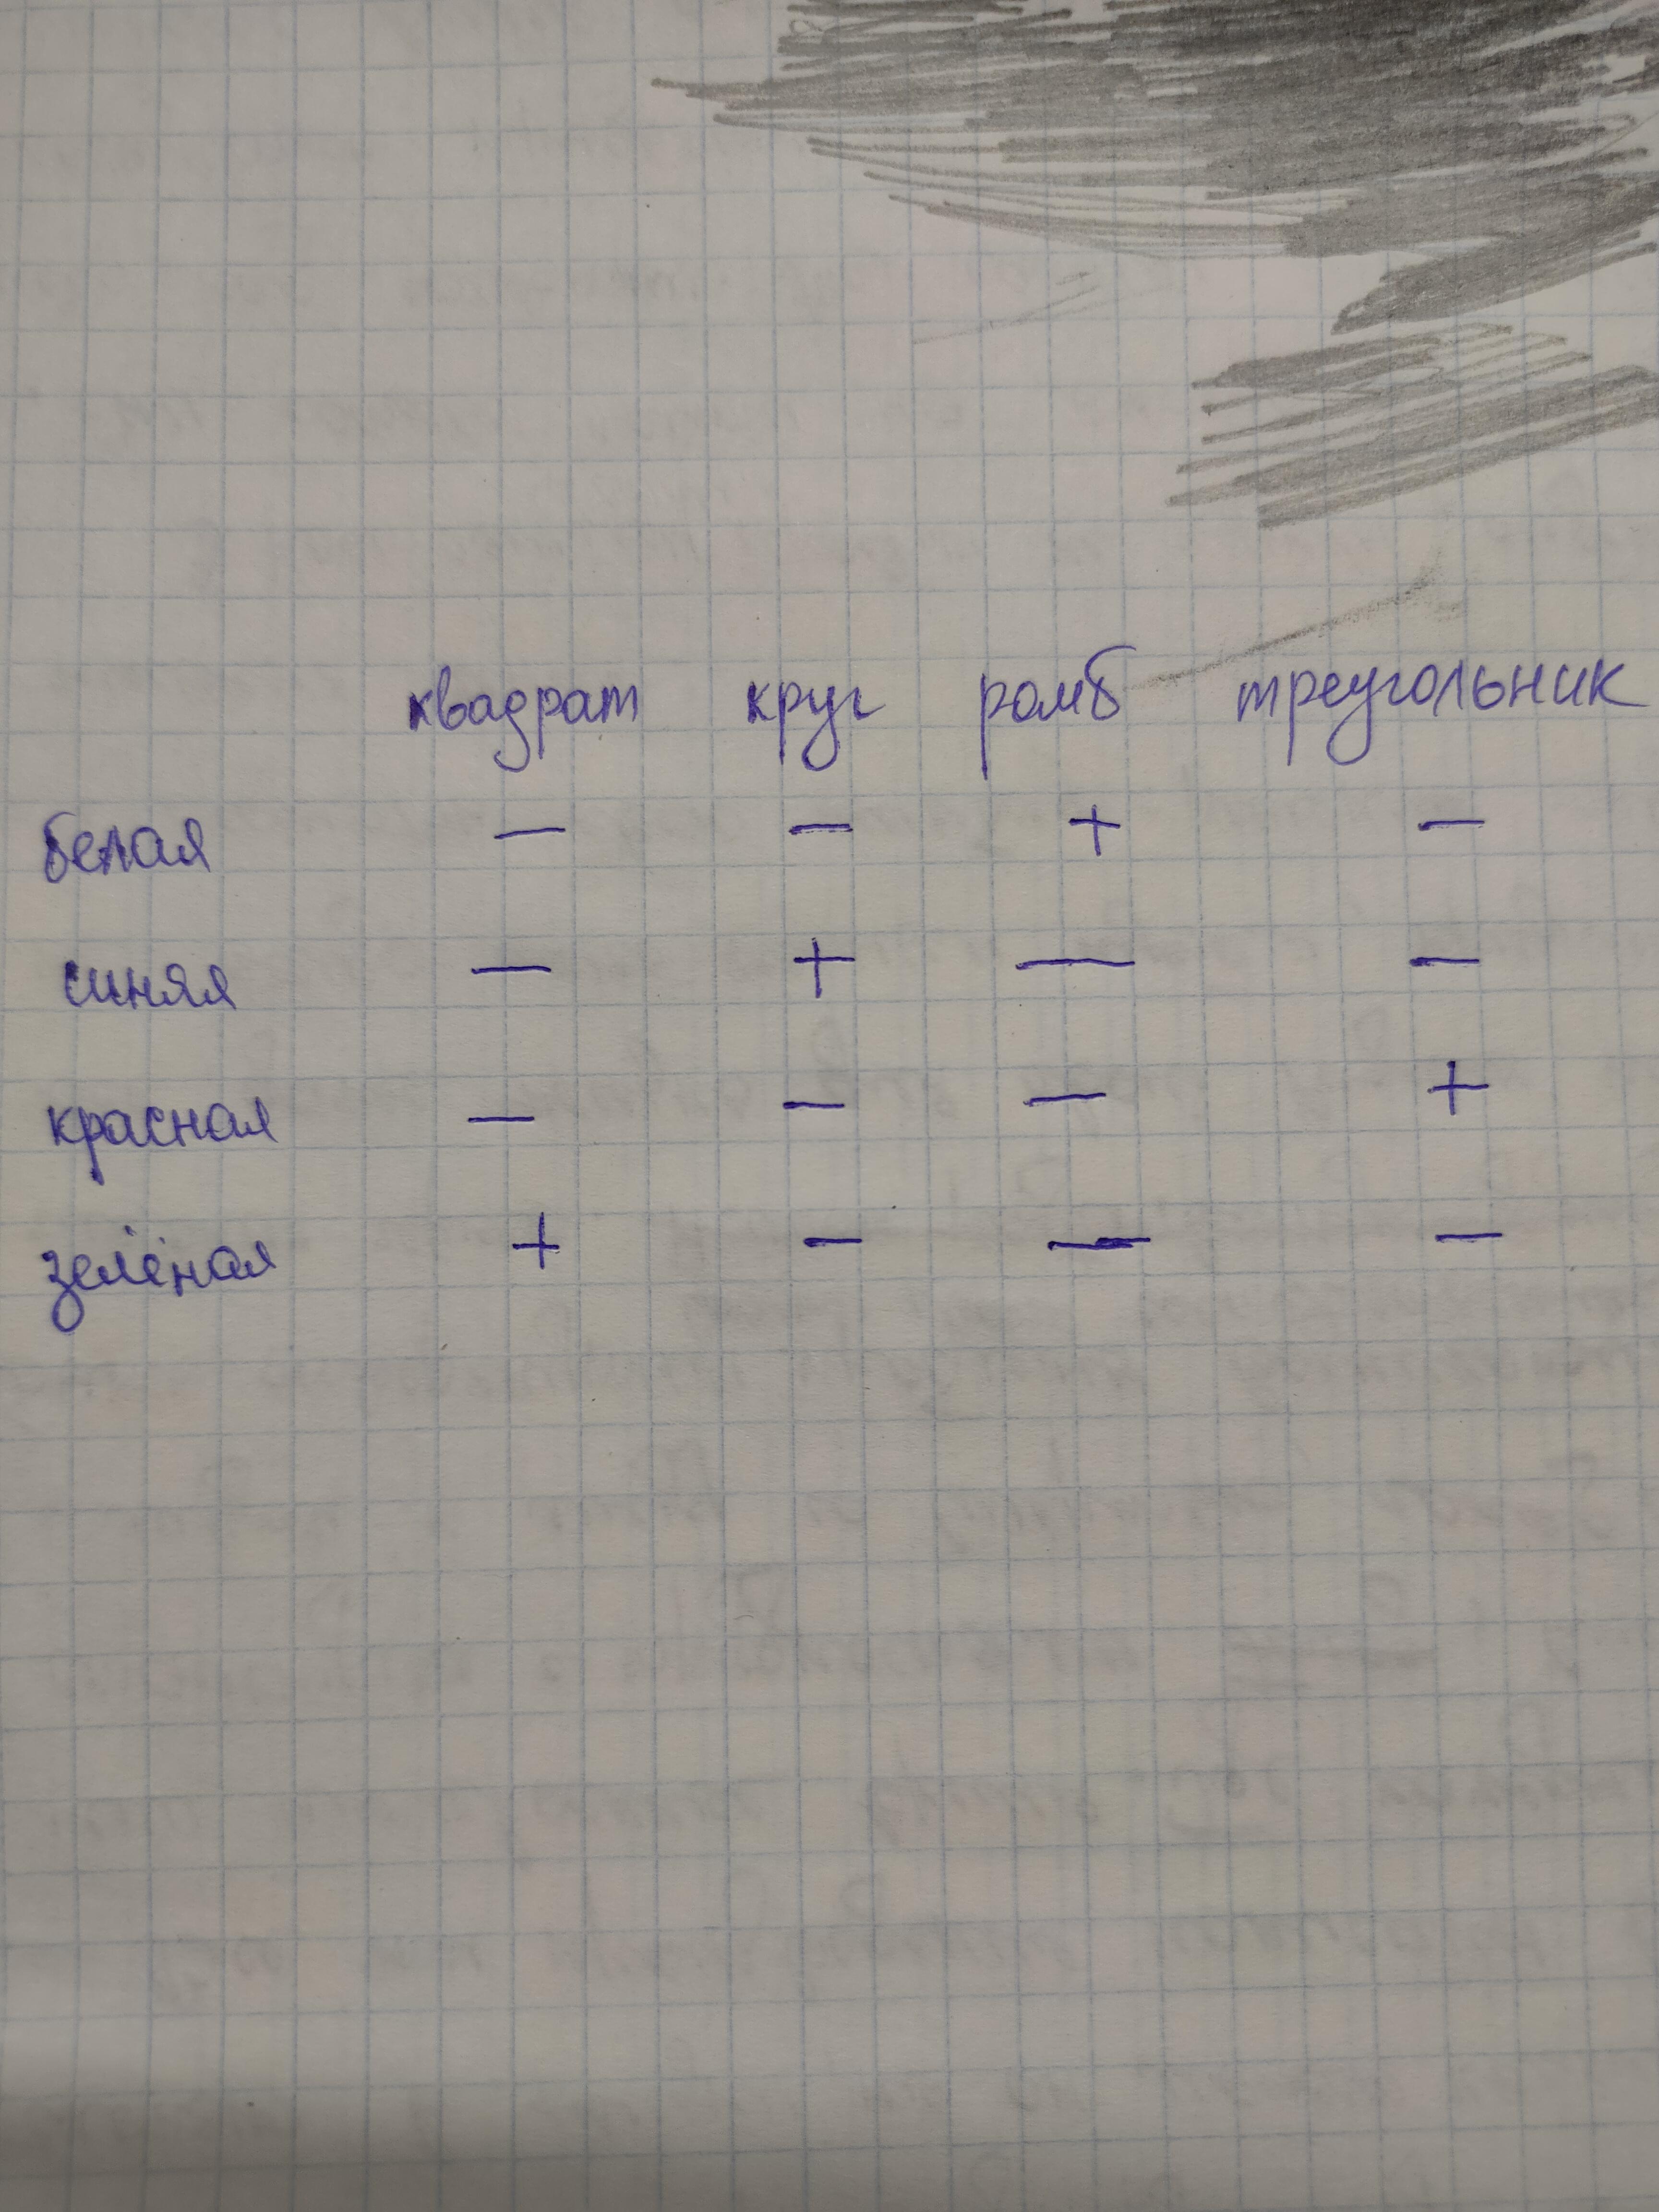 квадрат круг ромб треугольник
белая — — + —
синяя — + — —
красная — — — +
зелёная + — — —